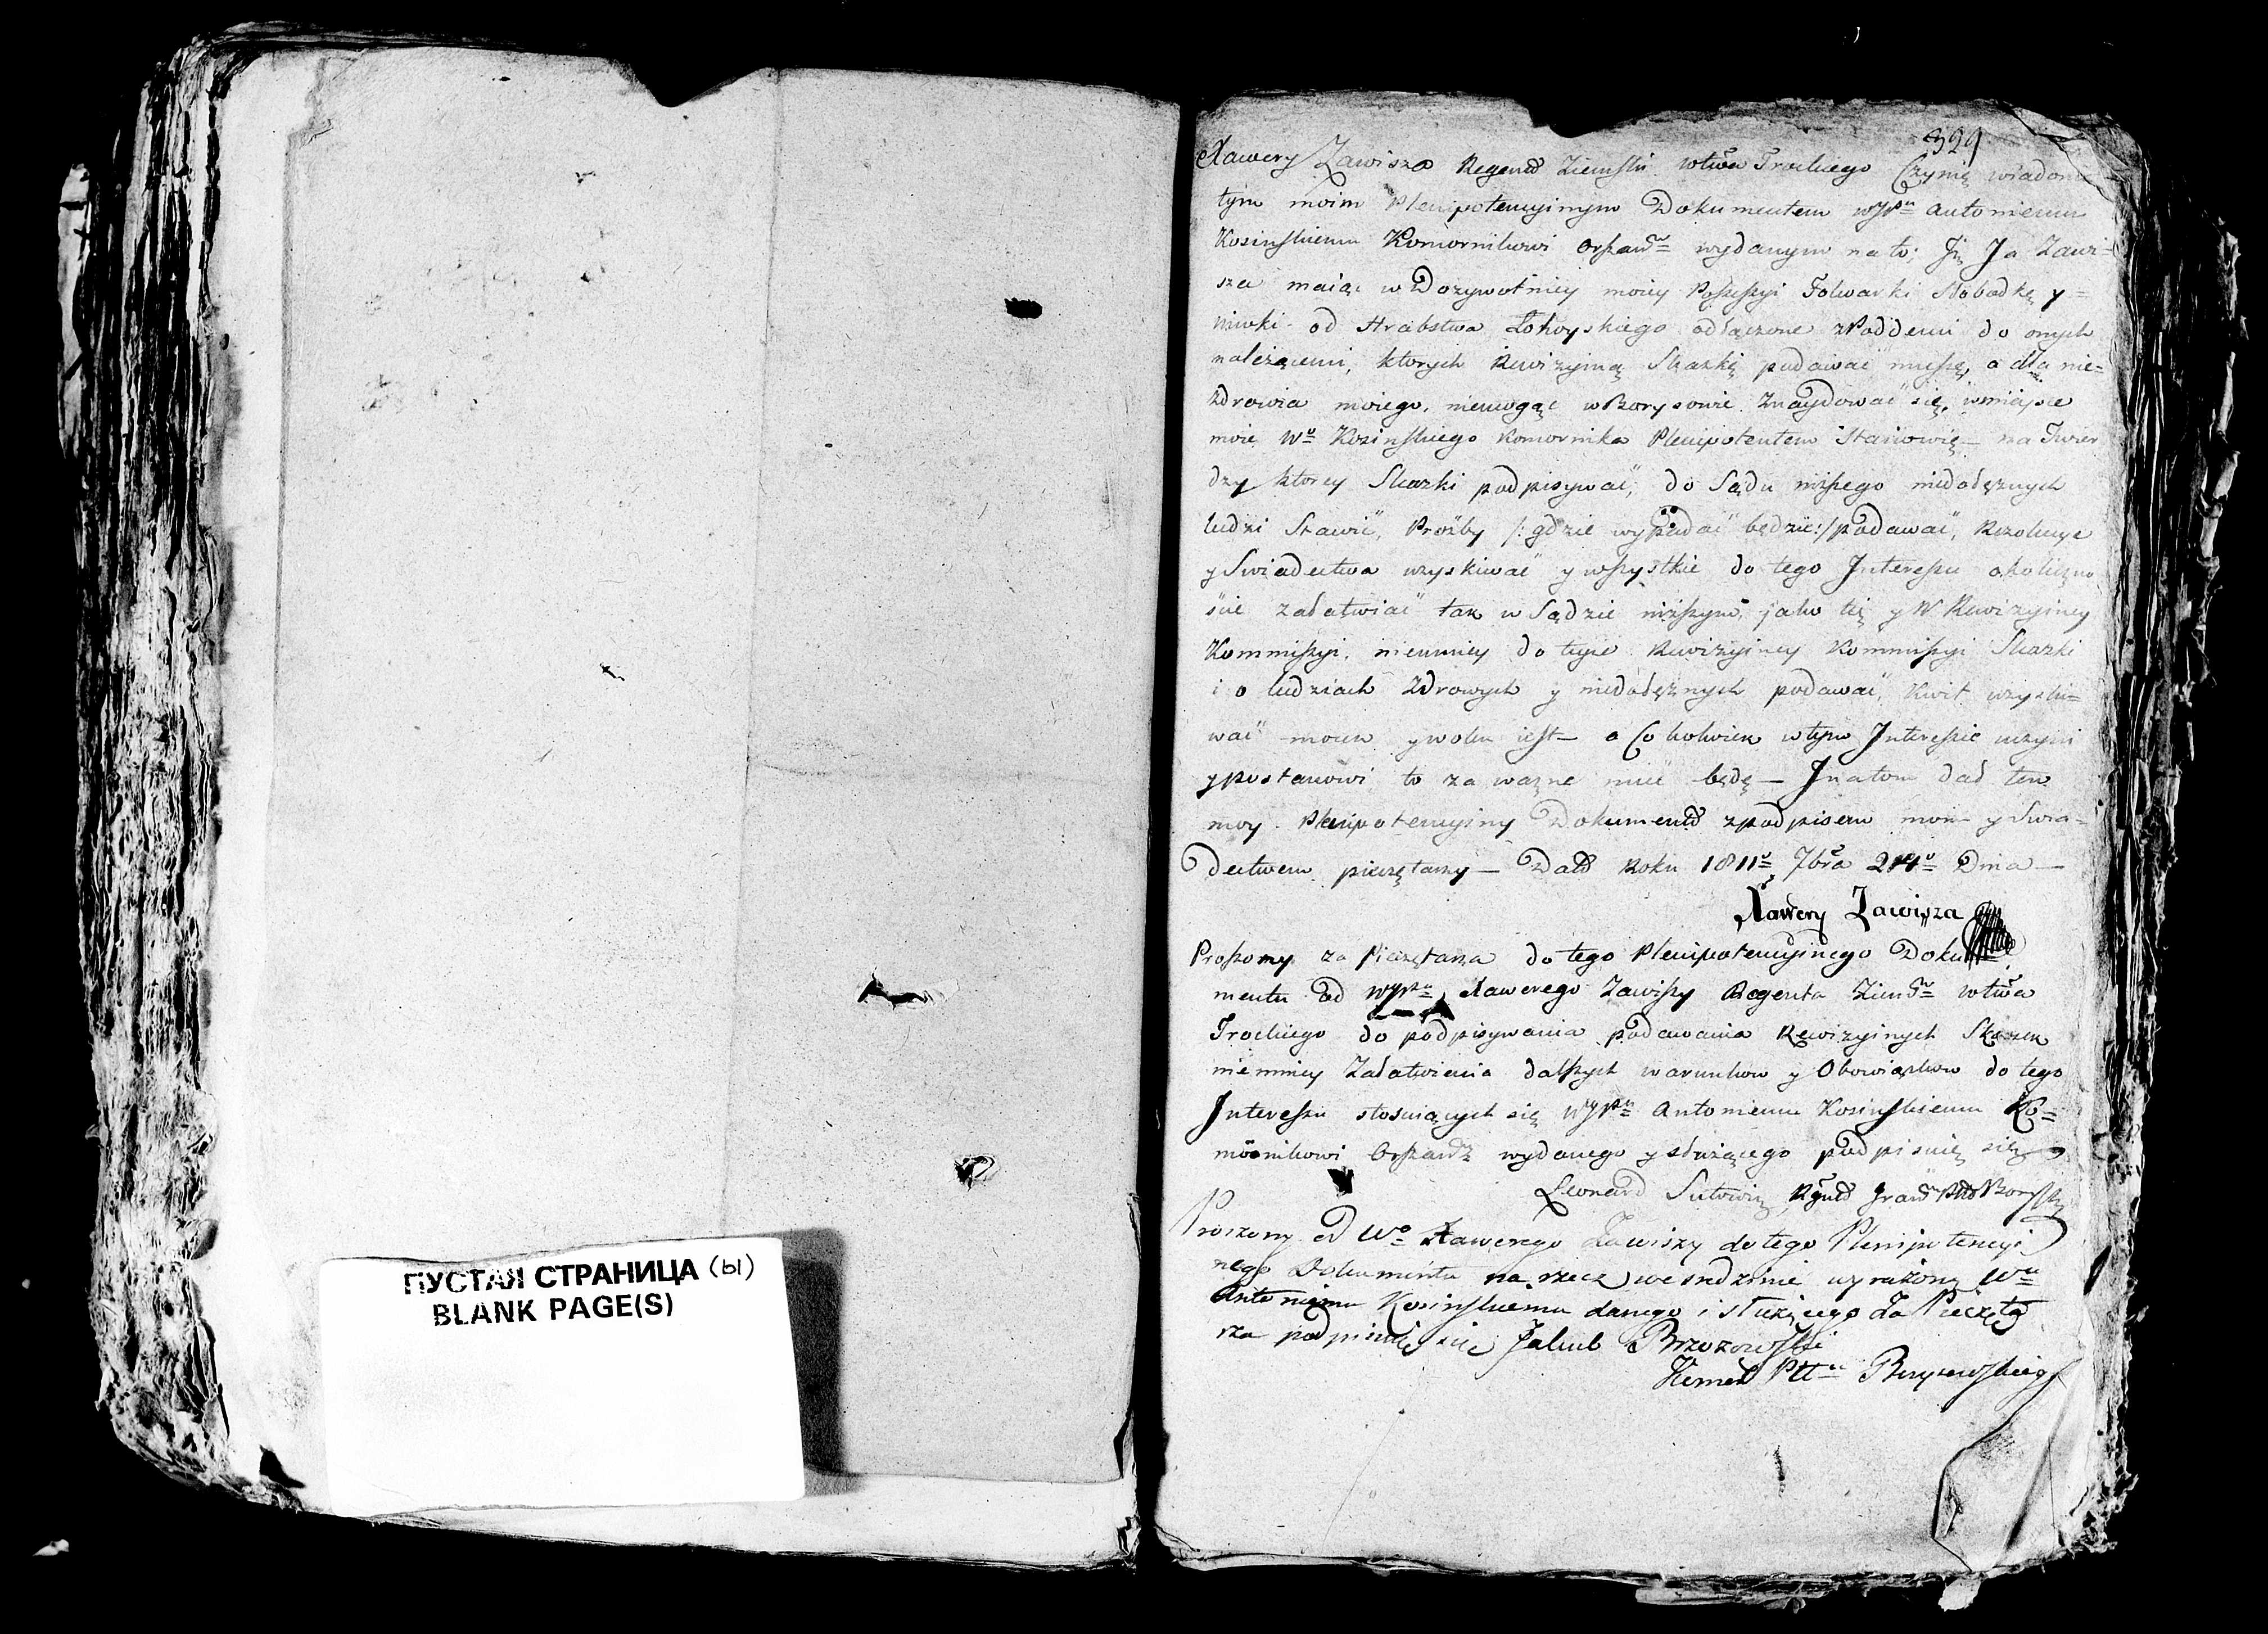 329
Xawery Zawisza Regent Ziemski wtwa Trockiego Czynię wiadomo
tym moim Plenipotencyinym Dokumentem WJPu Antoniemu
Kosinskiemu Komornikowi Orszań wydanym na to; Jż Ja Zawi=
sza maiąc w Dozywotniey moiey Possessyi Folwarki Słobodkę y=
niwki od Hrabstwa Łohoyskiego odłączone z Poddemi do onych
należącemi, ktorych Rewizyiną Skazkę podawać muszę, a dla nie=
zdrowia moiego, niemogąc w Borysowie Znaydować się, w mieysce
moie Wo Kosinskiego Komornika Plenipotentem Stanowię — na Twier
dzy ktorey Skazki podpisywać, do Sądu niższego niedołężnych
ludzi Stawić, Prozby /: gdzie wypadać będzie :/ podawać, Rezolucye
y Swiadectwa uzyskiwać y wszystkie do tego Jnteressu okoliczno
ście załatwiać tak w Sądzie niższym, jako też y W Rewizyiney
Kommissyi, niemniey do teyże Rewizyiney Kommissyi Skazki
i o ludziach Zdrowych y niedołężnych podawać, Kwit uzyski=
wać mocen y wolen iest — a Cokolwiek w tym Jnteressie uczyni
y postanowi to za ważne mieć będę — Jnatom dał ten
moy Plenipotencyiny Dokument z podpisem moim y Swia=
dectwem pieczętarzy — Datt Roku 1811o 7bra 24o Dnia —
Xawery Zawisza
Proszony za Pieczętarza do tego Plenipotencyinego Doku
mentu od WJPa Xawerego Zawiszy Regenta Ziemgo wtwa
Trockiego do podpisywania podawania Rewizyinych Skazek
niemniey Załatwienia dalszych warunkow y Obowiązkow do tego
Jnteressu stosuiących się WJPu Antoniemu Kosinskiemu Ko=
mornikowi Orszań wydanego y służącego podpisuię się
Leonard Regent Grań Ptu
Proszony od Wo Xawerego Zawiszy do tego Plenipotencyi
nego Dokumentu na rzecz we srzedzinie wyrażoną Wu
Antoniemu Kosinskiemu danego i służącego Za Pieczęta
rza podpisuię się Jakub Brzozowski
Komor Pttu Borysowskiego
ПУСТАЯ СТРАНИЦА (ы)
BLANK PAGE(S)